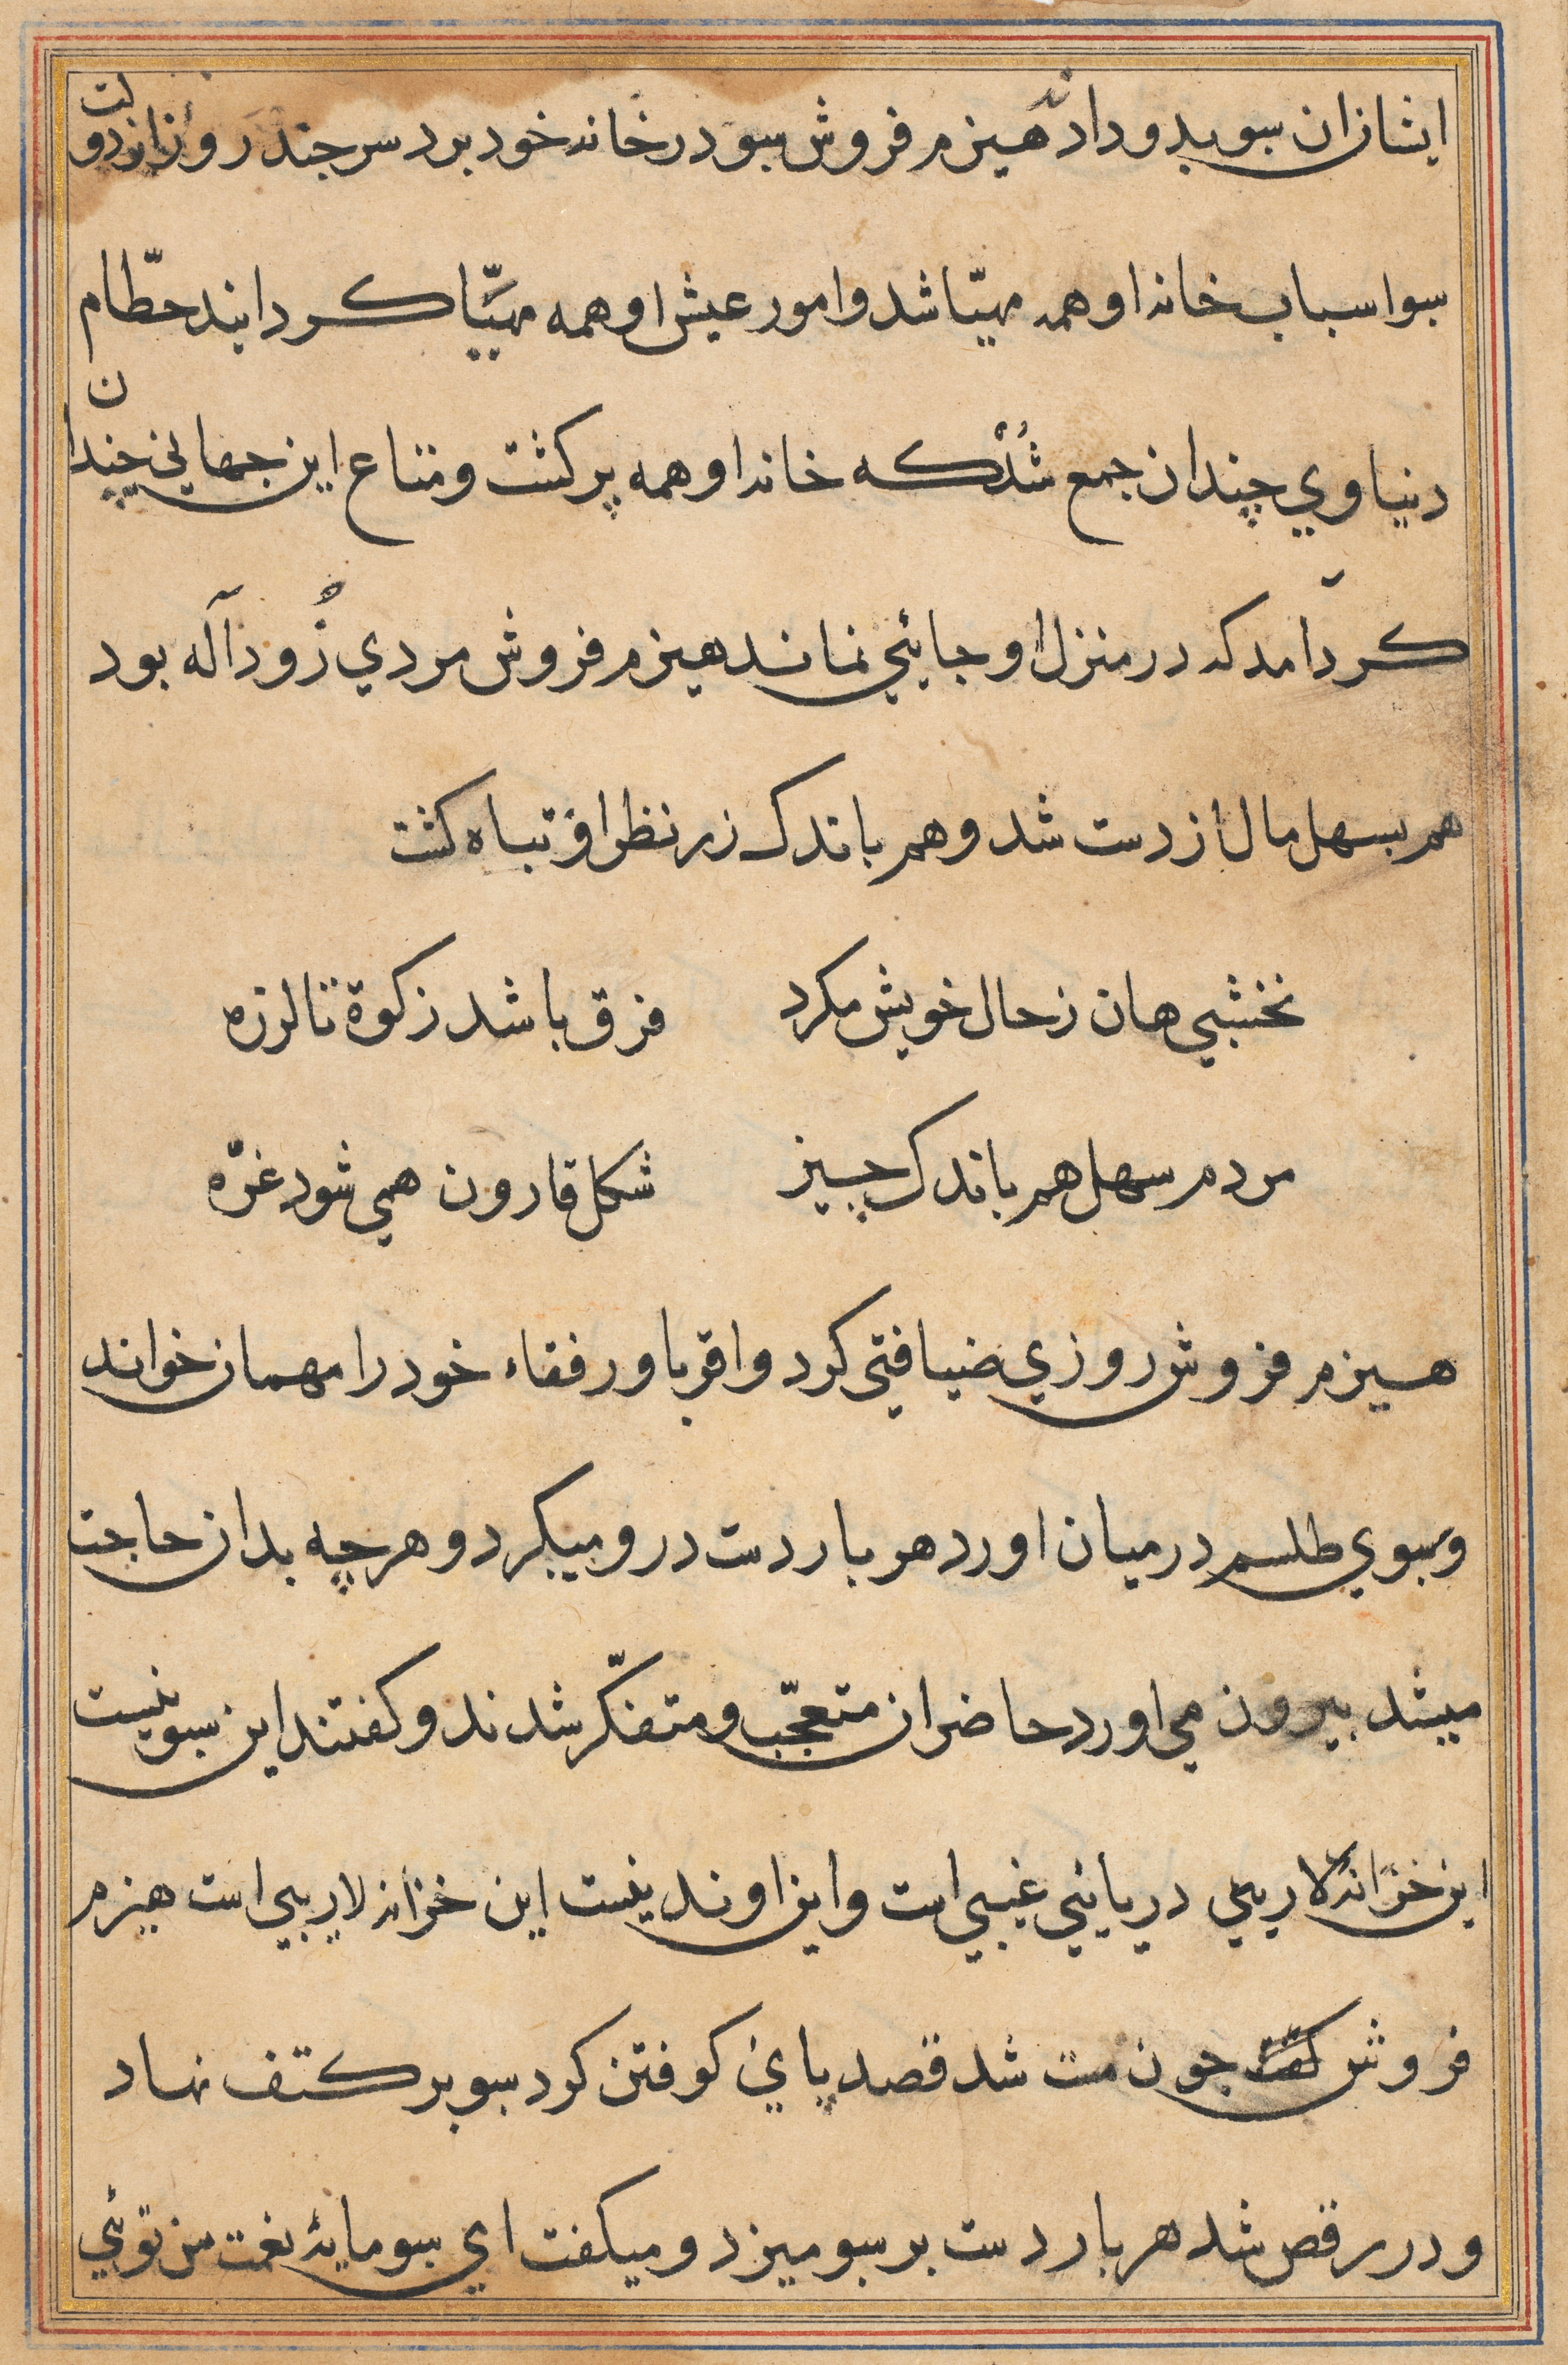 ایشان ان سبو بدو دادند هیزم فروش سبو در خانه خود برد سر جند روز از دولت
سبو اسباب خانه او همه مهیّا شد و امور عیش او همه مهیّا کردانید حطّام
دنیاوي چندان جمع شد که خانه او همه پر کشت و متاع این جهانی چندان
کرد آمد که در منزل او جائي نماند هیزم فروش مردي زود آله بود
هم بسهل مال از دست شد و هم باندک زر نظر او تباه کشت
نخشبي هان ز حال خویش مکرد فرق باشد ز کوة تا لرزه
مردم سهل هم باندک چیز شکل قارون همي شود غرّه
هیزم فروش روزي ضیافتي کرد و اقربا و رفقاء خود را مهمان خواند
و سبوي طلسم در میان اورد هر بار دست در و میبکرد و هر چه بدان حاجت
میشد بیرون مي اورد حاضران متعجّب و متفکّر شدند و کفتند این سبو نیست
این خزانه لاریبي دریائي غیبي است و این اوند نیست این خزانه لاریبي است هیزم
فروش کفت جون مست شد قصد پاي کوفتن کرد سبو بر کتف نهاد
و در رقص شد هر بار دست بر سبو میزد و میکفت اي سبو مایۀ نعمت من توئي